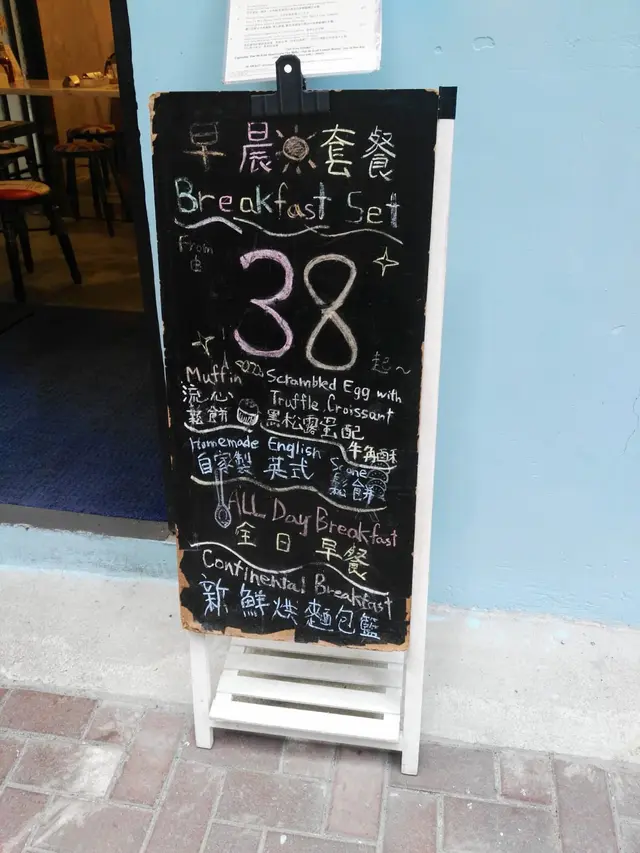 早晨套餐
Breakfast Set
From
由
38
起~
Muffin
流心
鬆餅
Scrambled Egg with
Truffle, Croissant
黑松露蛋配
牛角酥
Homemade English
Scone
自家製 英式
鬆餅
ALL Day Breakfast
全日早餐
Continental Breakfast
新鮮烘麵包籃